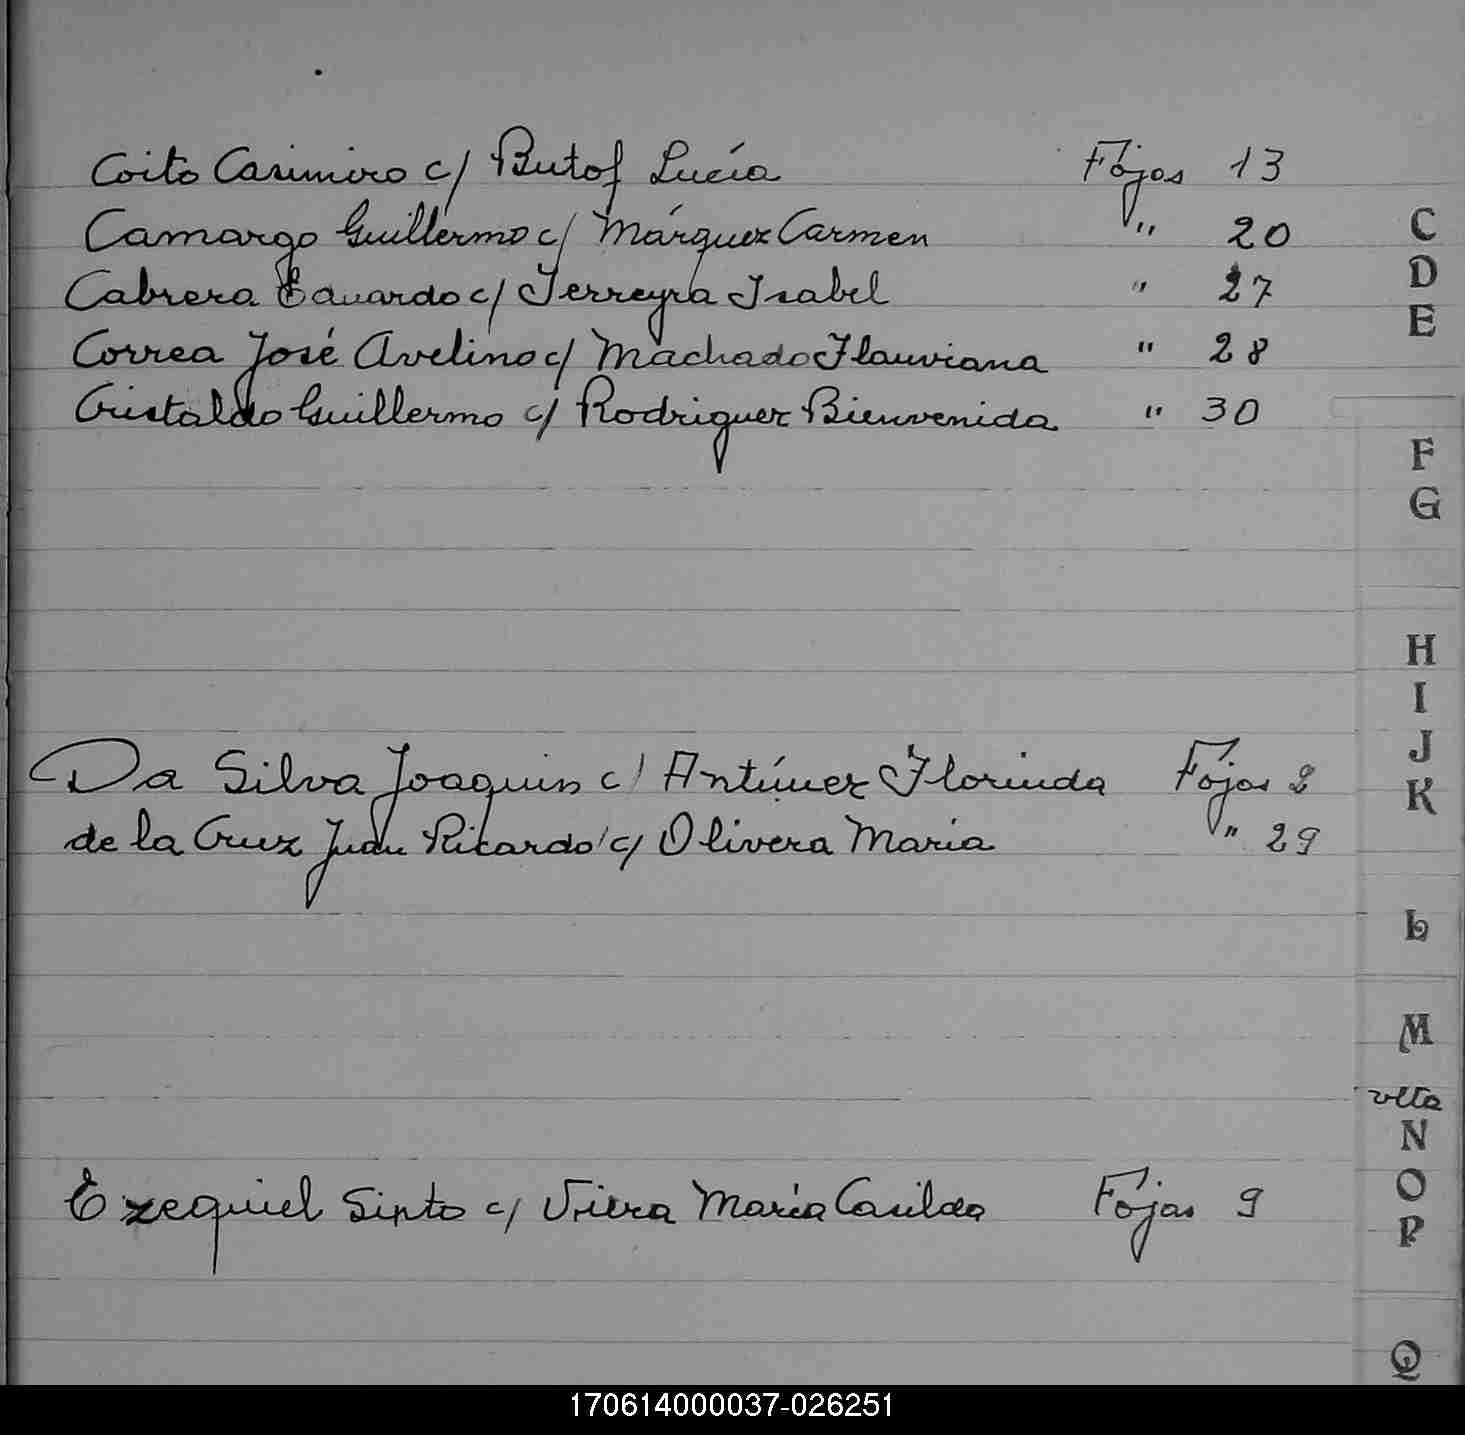 Coito Casimiro c/ Butof Lucía Fójas 13
Camargo Guillermo c/ Márquez Carmen " 20
Cabrera Eduardo c/ Ferreyra Isabel " 27
Correa José Avelino c/ Machado Flauviana " 28
Cristaldo Guillermo c/ Rodriguez Bienvenida " 30
Da Silva Joaquin c/ Antúnez Florinda Fójas 2
de la Cruz Juan Ricardo c/ Olivera Maria " 29
Ezequiel Sinto c/ Viera María Casilda Fójas 9
C
D
E
F
G
H
I
J
K
L
M
vlta
N
O
P
Q
170614000037-026251